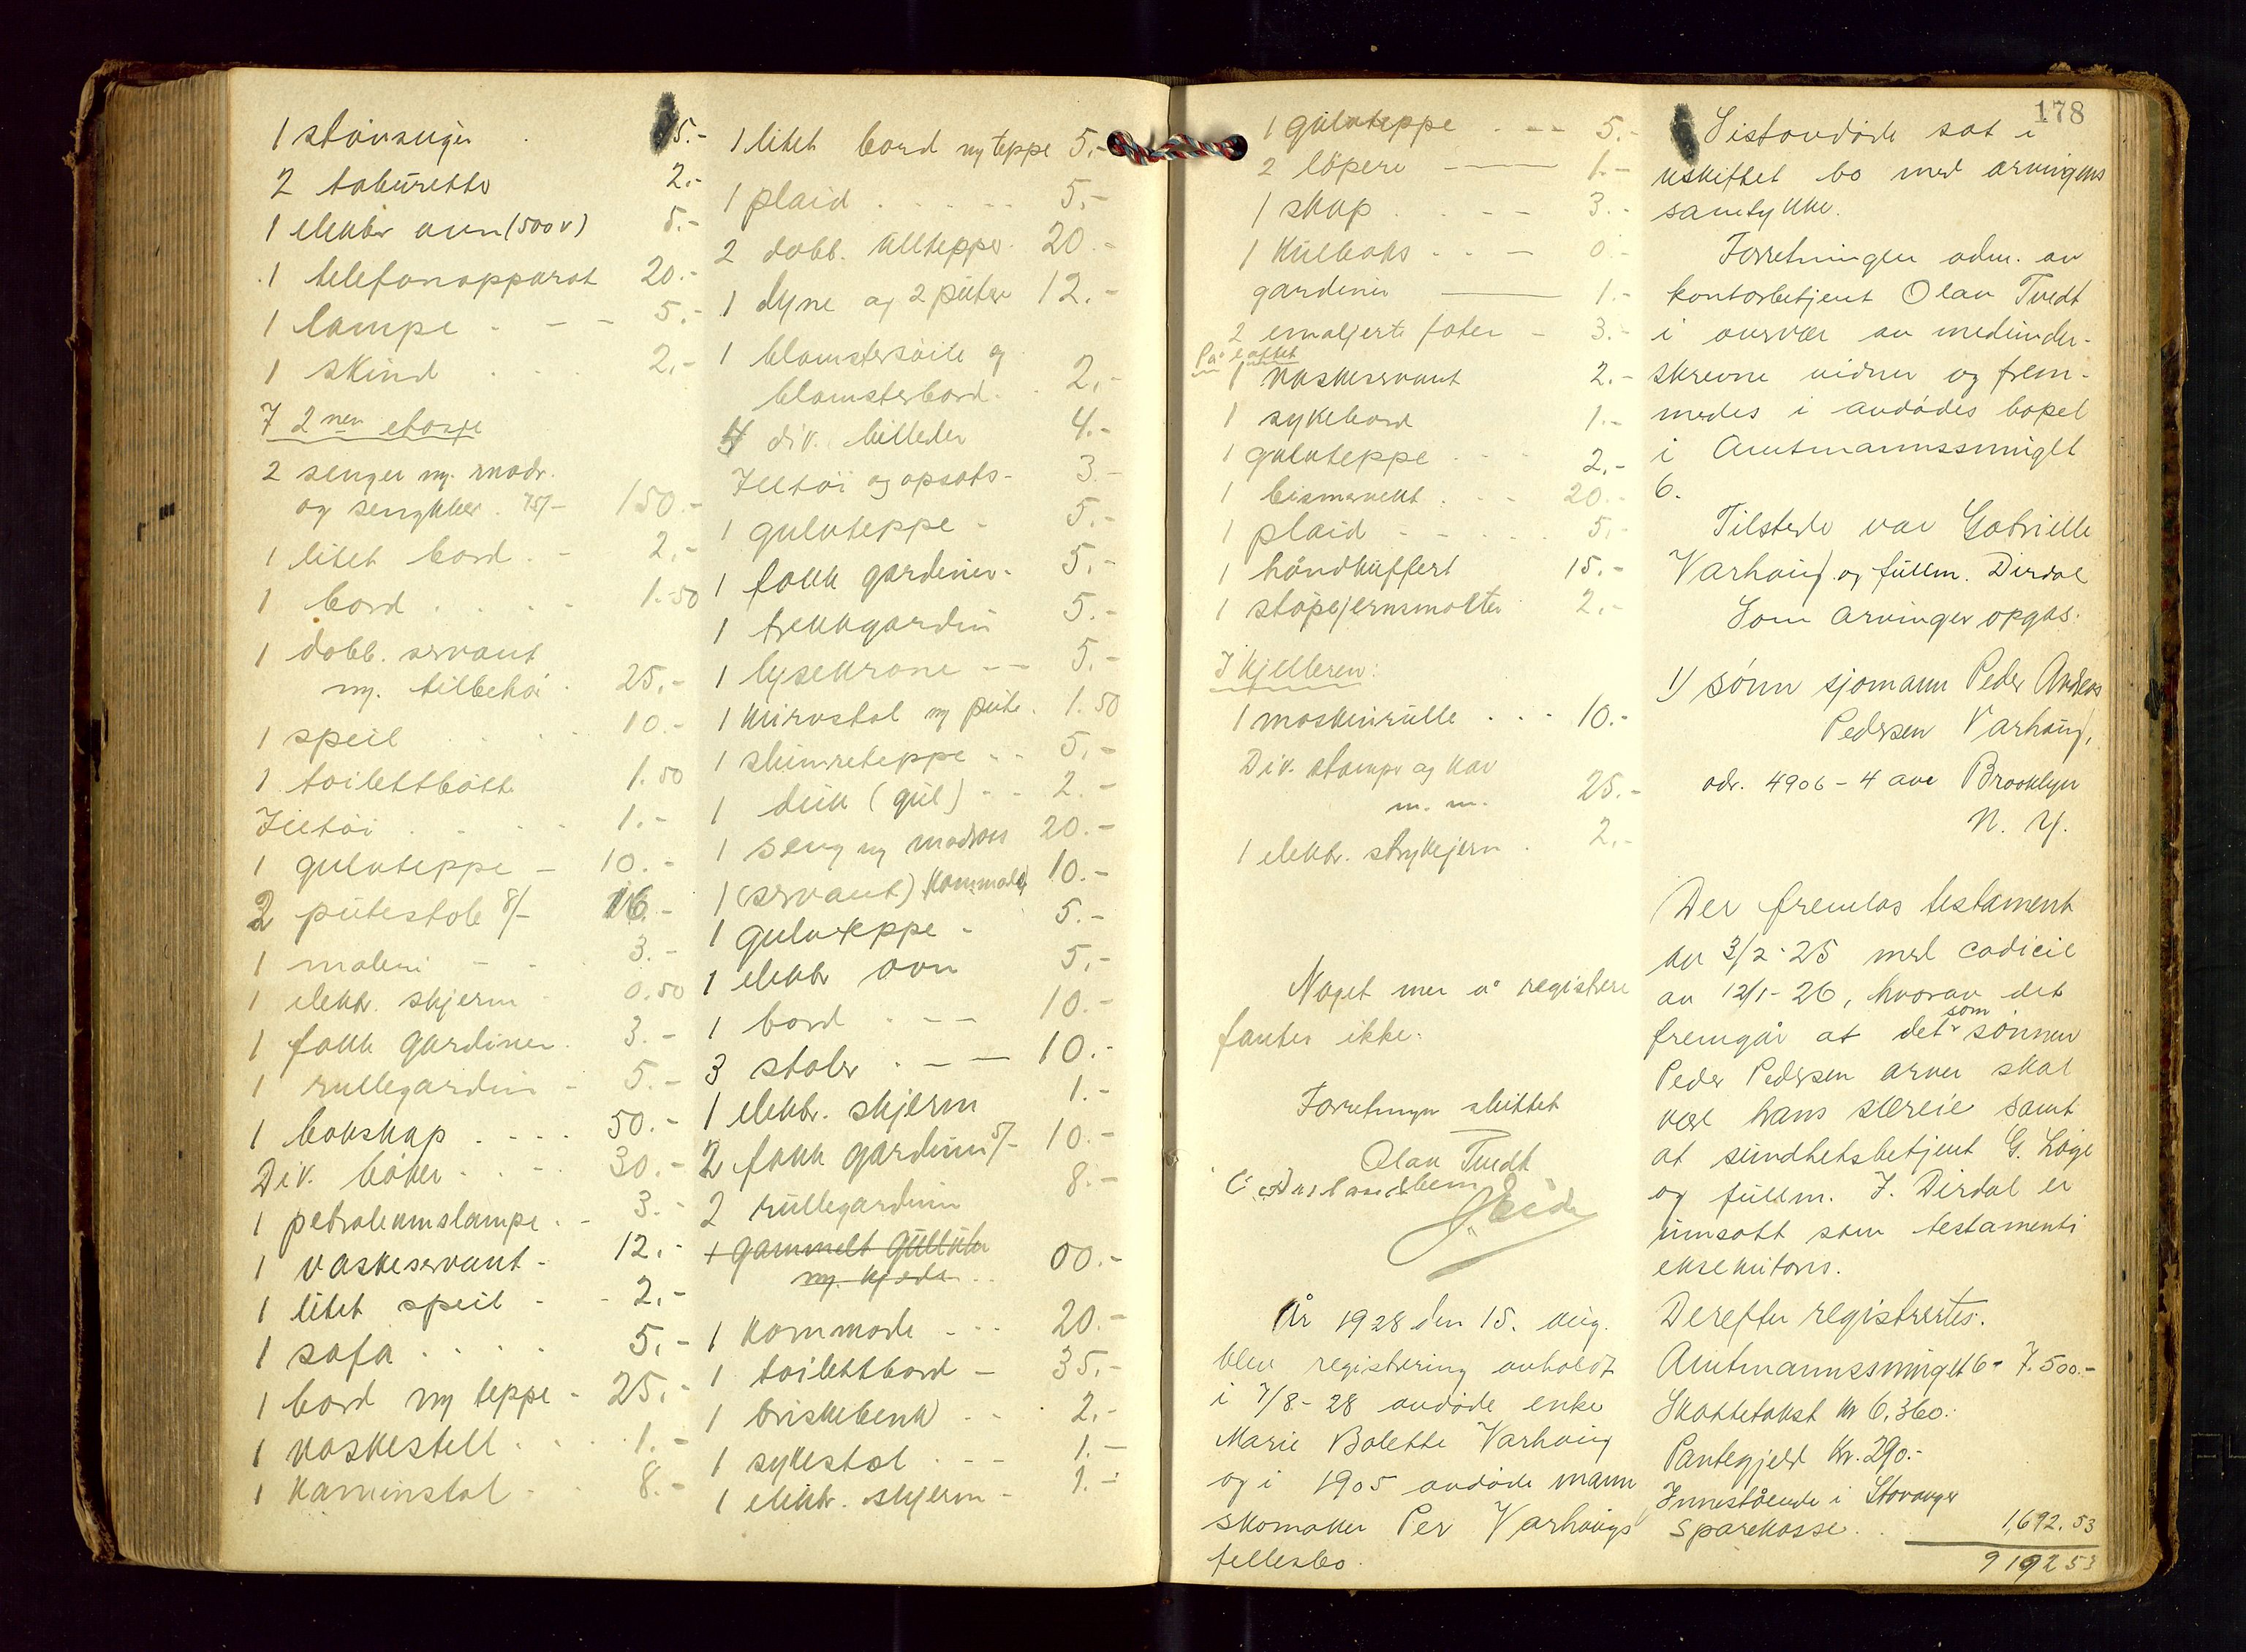 1 støvsuger . 5.-
2 taburetter 2.-
1 elektr ovn (500 v) 5.-
1 telefonapparat 20.-
1 lampe . - - - 5.-
1 skind . . . 2,-
I 2nen etasje
2 senger m. madr.
og sengklær . 75/- 150.-
1 litet bord . - 2,-
1 bord . . . . 1.50
1 dobb. servant
m. tilbehør . 25.-
1 speil . . . . 10.-
1 toilettbøtte 1.50
Filtøi . . . . 1.-
1 gulvteppe - 10.-
2 putestole 8/- 16.-
1 maleri - - 3.-
1 elektr. skjerm - 0.50
1 fakk gardiner . 3.-
1 rullegardin - 5.-
1 bokskap . . . . 50.-
Div. bøker . . - - 30.-
1 petroleumslampe . - 3.-
1 vaskeservant - 12.-
1 litet speil - - 2,-
1 sofa . . . . 5,-
1 bord m teppe - 25.-
1 vaskestell . . . . 1.-
1 kaminstol - . 8.-
1 litet bord m teppe 5,-
1 plaid . . . . . 5,-
2 dobb. ullteppe . 20.-
1 dyne og 2 puter 12.-
1 blomstersøile og
blomsterbord . . 2,-
4 div. billeder 4.-
Filtøi og opsats - 3.-
1 gulvteppe - 5.-
1 fakk gardiner - 5.-
1 trekkgardin 5.-
1 lysekrone - - 5,-
1 kurvstol m pute . 1.50
1 skinnteppe - - 5,-
1 duk (gul) - - 2.-
1 seng m madrass 20.-
1 (servant) kommode 10.-
1 gulvteppe - 5.-
1 elektr ovn 5,-
1 bord . - - 10.-
3 stoler . - - 10.-
1 elektr. skjerm 1.-
2 fakk gardiner 5/- 10.-
2 rullegardiner 8.-
1 gammelt gullur
m. kjede . . 00.-
1 kommode . . . 20.-
1 toilettbord - 35.-
1 briskebenk . . . 2,-
1 sykestol . - - 1.-
1 elektr. skjerm - 1.-
1 gulvteppe . - - 5.-
2 löpere - 1.-
1 skap . . - - 3.-
1 kulboks . . - 0.-
gardiner - 1.-
2 emaljerte fater - 3.-
På loftet
1 vaskeservant 2.-
1 sykebord 1.-
1 gulvteppe . . . 2,-
1 bismervekt . . . 20.-
1 plaid - - . . . 5,-
1 håndkuffert 15.-
1 støpejernsmolter 2.-
I kjelleren:
1 maskinrulle . . - 10.-
Div. stamper og kar
m. m. 25.-
1 elektr. strykejern . 2,-
Noget mer å registere
fantes ikke.
Forretningen sluttet
Olav Tvedt
År 1928 den 15. aug.
blev registrering avholdt
i 7/8-28 avdøde enke
Marie Bolette Varhaug
og i 1905 avdøde mann
skomaker Per Varhaugs
fellesbo.
178
Sistavdøde sat i
uskiftet bo med arvingens
samtykke.
Forretningen adm. av
kontorbetjent Olav Tvedt
i overvær av medunder-
skrevne vidner og frem-
medes i avdødes bopel
i Amtmannssmuget
6.
Tilstede var Gabrielle
Varhaug og fullm. Dirdal
Som arvinger opgas:
1) sønn sjømann Peder Andreas
Pedersen Varhaug,
adr. 4906 - 4 ave Brooklyn
N. Y.
Der fremlas testament
av 3/2-25 med codicil
av 12/1-26, hvorav det
fremgår at det som sønnen
Peder Pedersen arver skal
være hans særeie samt
at sundhetsbetjent G. Löge
og fullm. F. Dirdal er
innsatt som testaments
eksekutors.
Derefter registrertes:
Amtmannssmuget 6 - 7.500.-
Skattetakst kr 6,360.-
Pantegjeld Kr. 290.-
Innestående i Stavanger
Sparekasse . . 1,692.53
9192 53